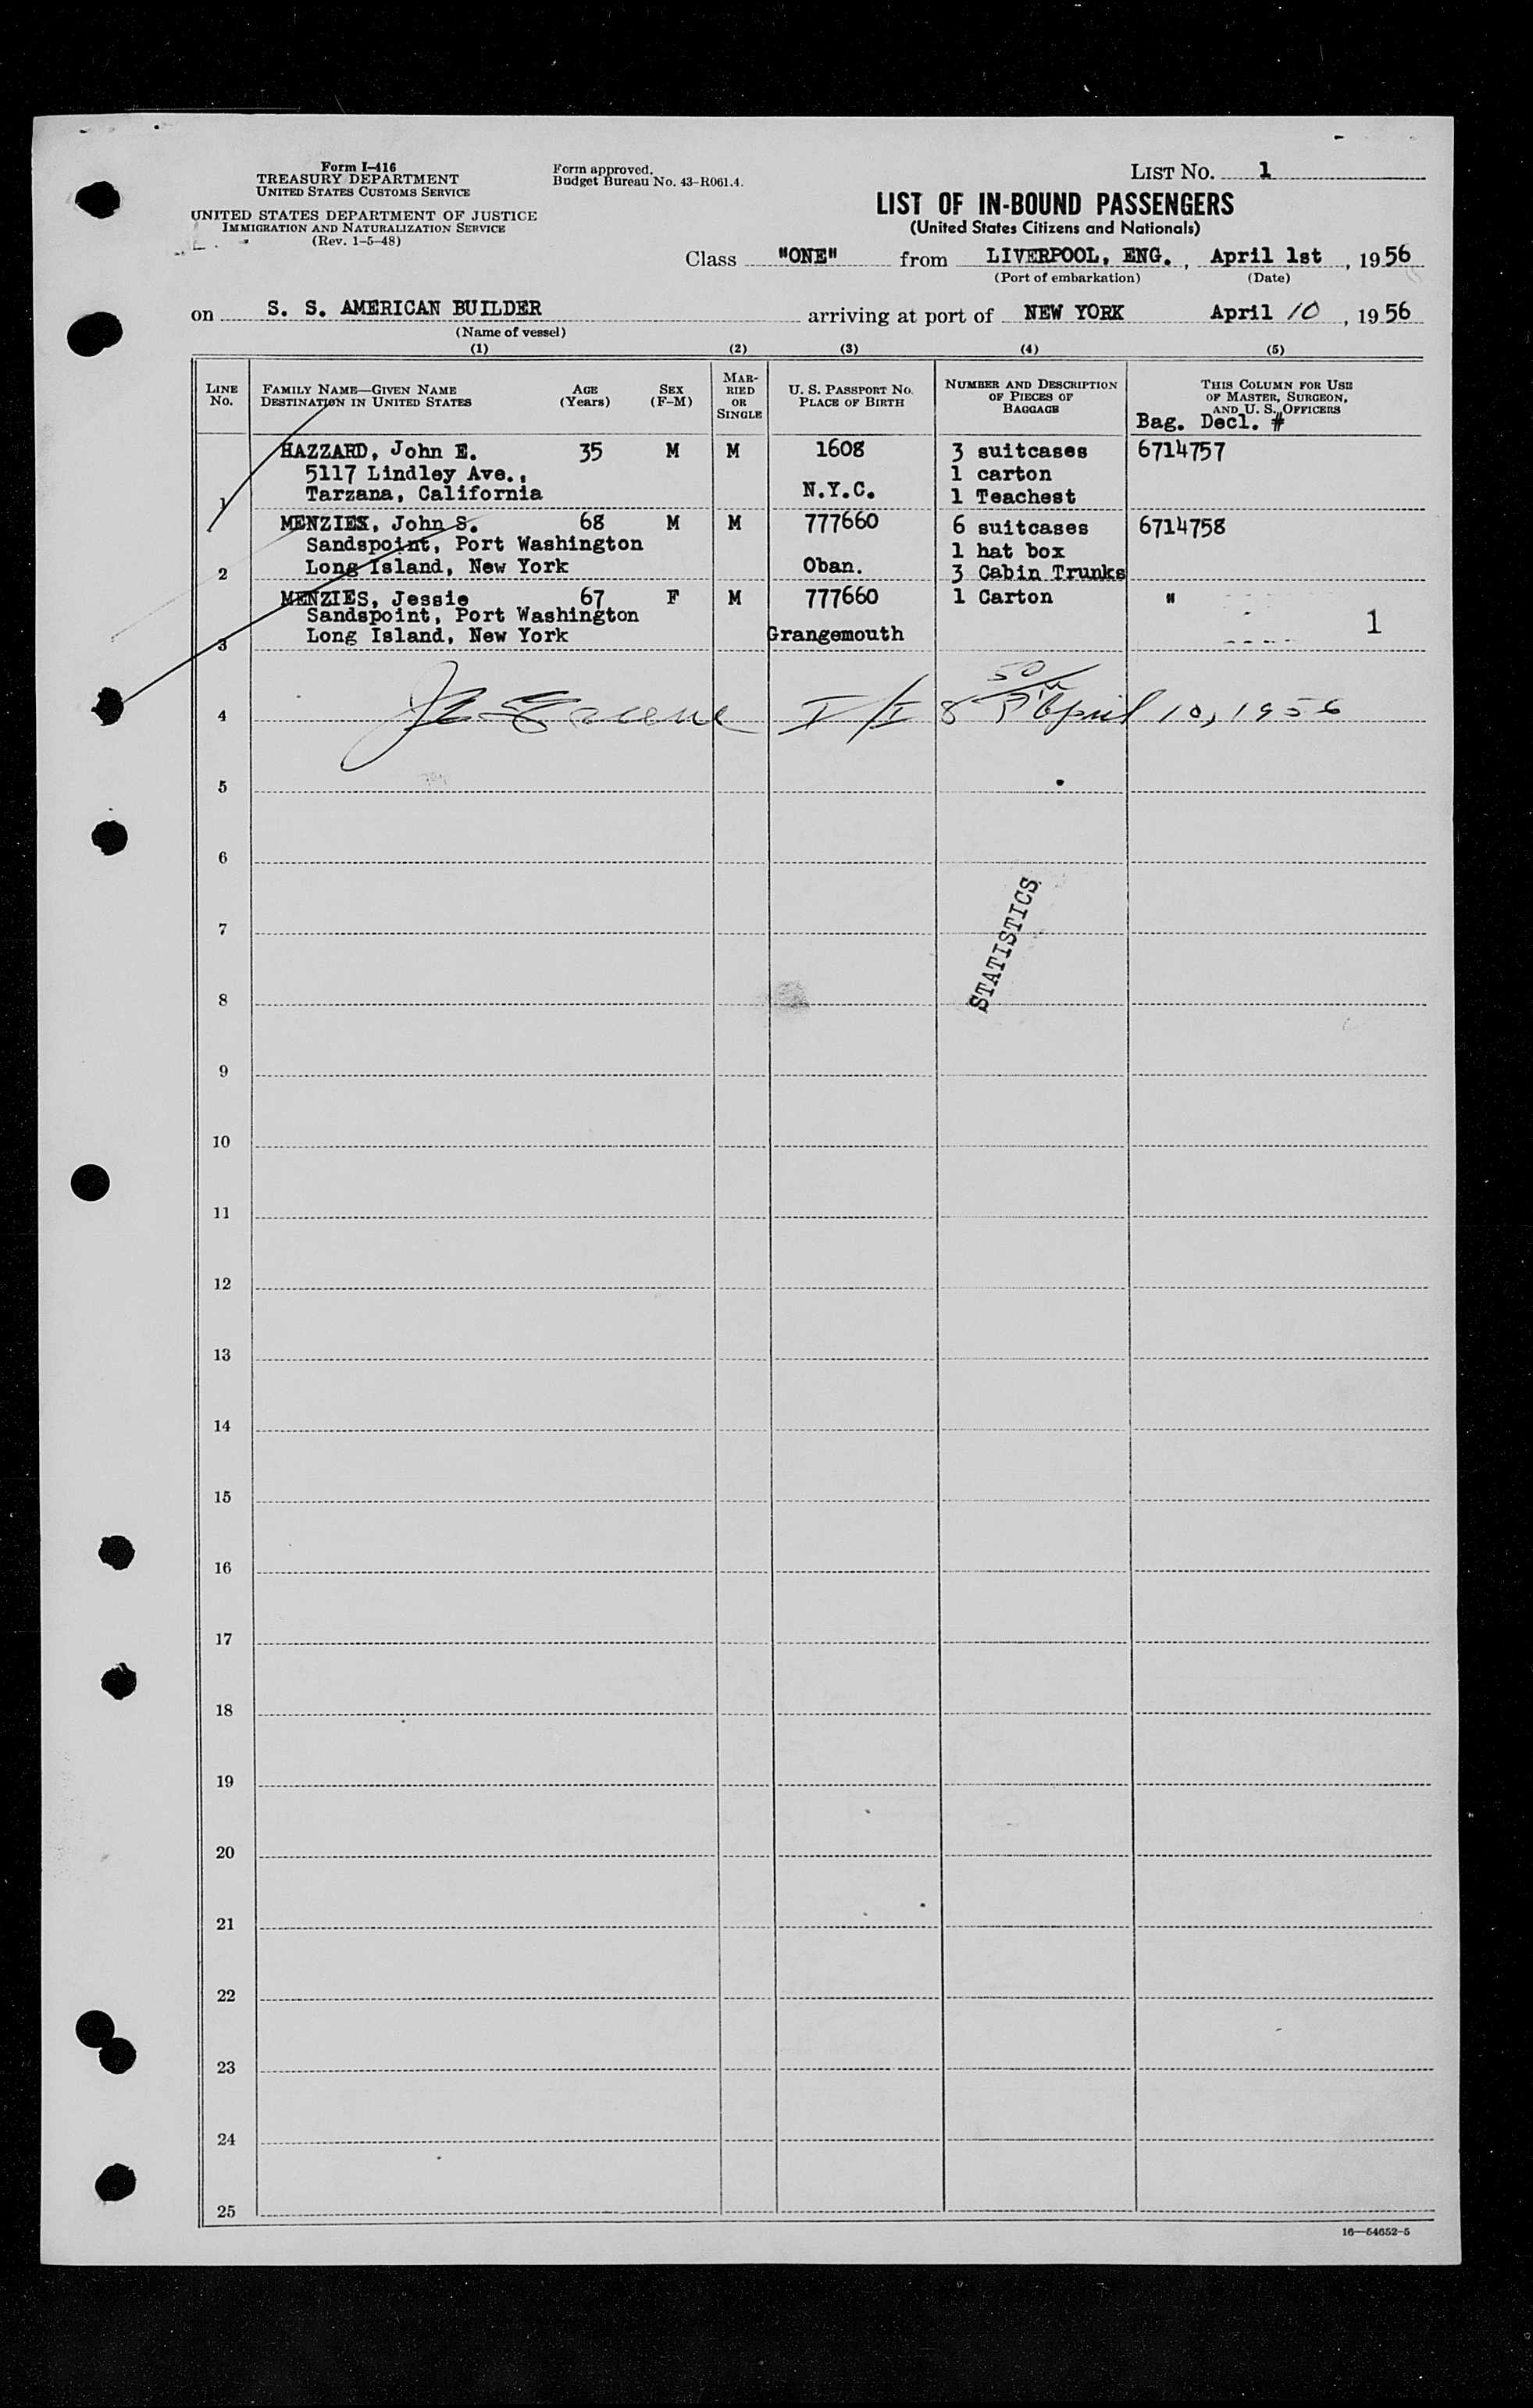 Form I-416
TREASURY DEPARTMENT
UNITED STATES CUSTOMS SERVICE
UNITED STATES DEPARTMENT OF JUSTICE
IMMIGRATION AND NATURALIZATION SERVICE
(Rev. 1-5-48)
Form approved.
Budget Bureau No. 43-R061.4.
LIST No. 1
LIST OF IN-BOUND PASSENGERS
(United States Citizens and Nationals)
Class "ONE" from LIVERPOOL, ENG., April 1st, 1956
(Port of embarkation) (Date)
on S. S. AMERICAN BUILDER arriving at port of NEW YORK April 10, 1956
(Name of vessel)
(1) (2) (3) (4) (5)
LINE No.
FAMILY NAME—GIVEN NAME
DESTINATION IN UNITED STATES
AGE (Years)
SEX (F-M)
MARRIED OR SINGLE
U. S. PASSPORT No.
PLACE OF BIRTH
NUMBER AND DESCRIPTION OF PIECES OF BAGGAGE
THIS COLUMN FOR USE OF MASTER, SURGEON, AND U. S. OFFICERS
Bag. Decl. #
HAZZARD, John E. 35 M M 1608 3 suitcases 6714757
5117 Lindley Ave., 1 carton
1 Tarzana, California N.Y.C. 1 Teachest
MENZIES, John S. 68 M M 777660 6 suitcases 6714758
Sandspoint, Port Washington 1 hat box
2 Long Island, New York Oban. 3 Cabin Trunks
MENZIES, Jessie 67 F M 777660 1 Carton "
Sandspoint, Port Washington 1
3 Long Island, New York Grangemouth
4 April 10, 1956
5
6
7
STATISTICS
8
9
10
11
12
13
14
15
16
17
18
19
20
21
22
23
24
25
16—54652-5